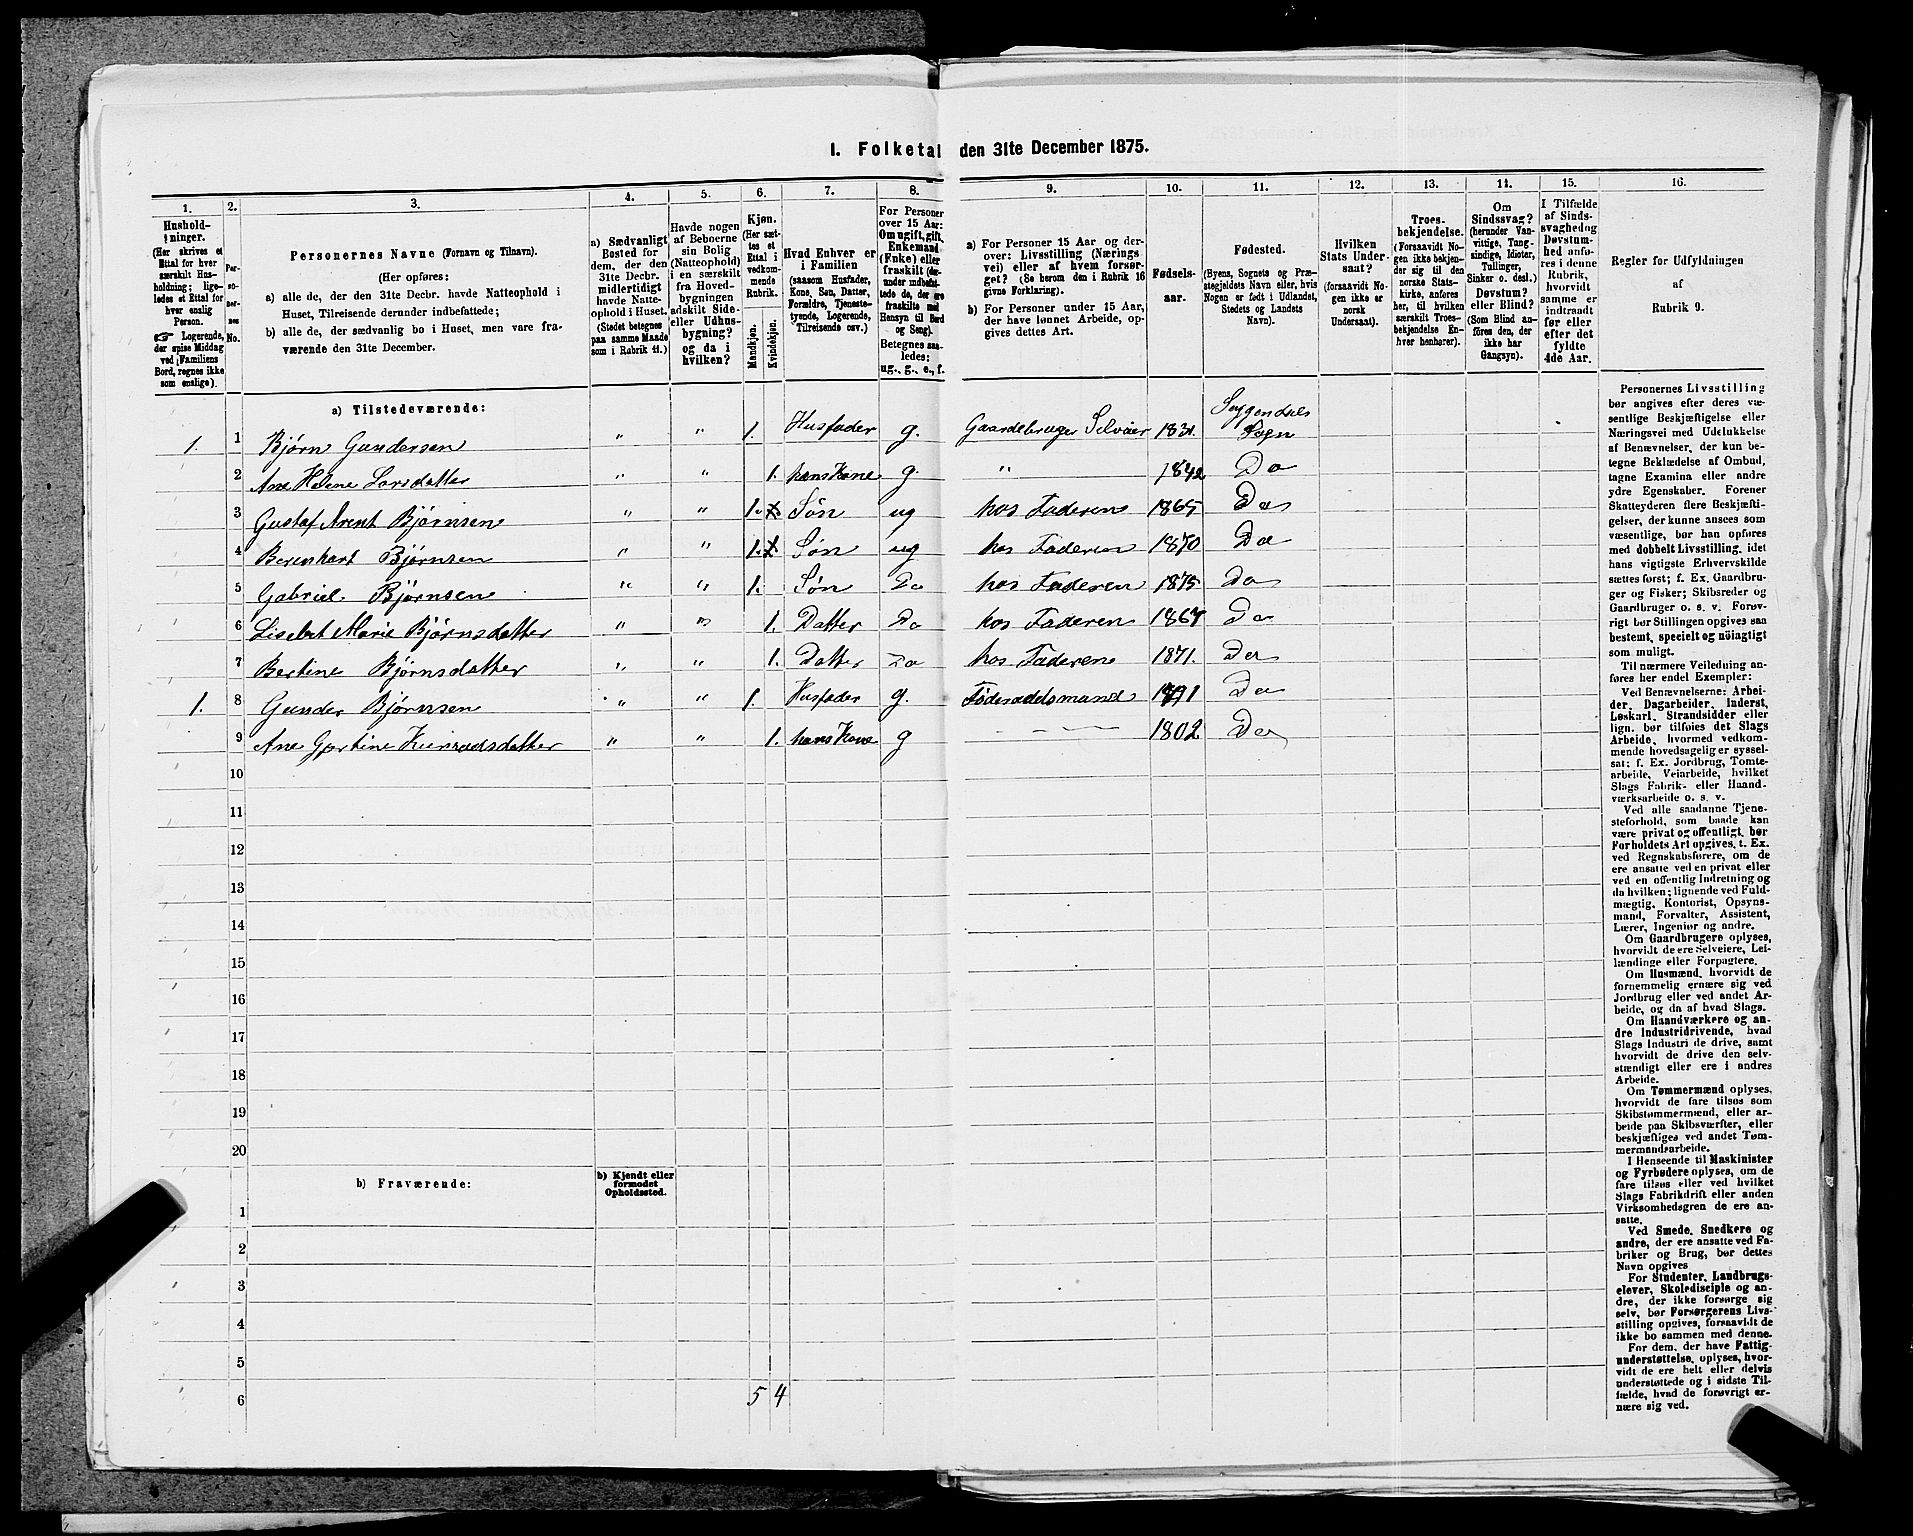 1. Folketal den 31te December 1875.
1.
2.
3.
4.
5.
6.
7.
8.
9.
10.
11.
12.
13.
14.
15.
16.
Hushold-
ninger.
(Her skrives et
Ettal for hver
særskilt Hus-
holdning; lige-
ledes et Ettal for
hver enslig
Person.
☞ Logerende,
der spise Middag
ved Familiens
Bord, regnes ikke
som enslige).
Per-
so-
ner-
nes
No.
Personernes Navne (Fornavn og Tilnavn).
(Her opføres:
a) alle de, der den 31te Decbr. havde Natteophold i
Huset, Tilreisende derunder indbefattede;
b) alle de, der sædvanlig bo i Huset, men vare fra-
værende den 31te December.
a) Sædvanligt
Bosted for
dem, der den
31te Decbr.
midlertidigt
havde Natte-
ophold i Huset.
(Stedet betegnes
paa samme Maade
som i Rubrik 11.)
Havde nogen
af Beboerne
sin Bolig
(Natteophold)
i en særskilt
fra Hoved-
bygningen
adskilt Side-
eller Udhus-
bygning?
og da i
hvilken?
Kjøn.
(Her sæt-
tes et
Ettal i
vedkom-
mende
Rubrik.
Mandkjøn.
Kvindekjøn.
Hvad Enhver er
i Familien
(saasom Husfader,
Kone, Søn, Datter,
Forældre, Tjeneste-
tyende, Logerende,
Tilreisende osv.)
For Personer
over 15 Aar:
Om ugift, gift,
Enkemand
(Enke) eller
fraskilt (der-
under indbefat-
tede de, der ere
fraskilte med
Hensyn til Bord
og Seng).
Betegnes saa-
ledes:
ug., g., e., f.
a) For Personer 15 Aar og der-
over: Livsstilling (Nærings-
vei) eller af hvem forsør-
get? (Se herom den i Rubrik 16
givne Forklaring).
b) For Personer under 15 Aar,
der have lønnet Arbeide, op-
gives dettes Art.
Fødsels-
aar.
Fødested.
(Byens, Sognets og Præ-
stegjeldets Navn eller, hvis
Nogen er født i Udlandet,
Stedets og Landets
Navn).
Hvilken
Stats Under-
saat?
(forsaavidt No-
gen ikke er
norsk
Undersaat).
Troes-
bekjendelse.
(Forsaavidt No-
gen ikke bekjen-
der sig til den
norske Stats-
kirke, anføres
her, til hvilken
særskilt Troes-
bekjendelse En-
hver henhører).
Om
Sindssvag?
(herunder Van-
vittige, Tung-
sindige, Idioter,
Tullinger,
Sinker o. desl.)
Døvstum?
eller Blind?
(Som Blind an-
føres den, der
ikke har
Gangsyn).
I Tilfælde
af Sinds-
svaghed og
Døvstum-
hed anfø-
res i denne
Rubrik,
hvorvidt
samme er
indtraadt
før eller
efter det
fyldte
4de Aar.
Regler for Udfyldningen
af
Rubrik 9.
a) Tilstedeværende:
1. 1 Bjørn Gundersen " " 1. Husfader g. Gaardebruger Selveier 1831. Sogn
2 Ane Helene Larsdatter " " 1. hans Kone g " 1842 Do
3 Gustaf Arent Bjørnsen " " 1. Søn ug hos Faderen 1865 Do
4 Berenhart Bjørnsen " " 1. Søn ug hos Faderen 1870 Do
5 Gabriel Bjørnsen " " 1. Søn Do hos Faderen 1875 Do
6 Lisebet Marie Bjørnsdatter " " 1. Datter Do hos Faderen 1867 Do
7 Bertine Bjørnsdatter " " 1. Datter Do hos Faderen 1871. Do
1. 8 Gunder Bjørnsen " " 1. Husfader g. Føderaadsmand Do
9 Ane Gjertine " " 1. hans Kone g 1802 Do
10
11
12
13
14
15
16
17
18
19
20
b) Fraværende:
b) Kjendt eller
formodet
Opholdssted.
1
2
3
4
5
6
5 4
Personernes Livsstilling
bør angives efter deres væ-
sentlige Beskjæftigelse eller
Næringsvei med Udelukkelse
af Benævnelser, der kun be-
tegne Beklædelse af Ombud,
tagne Examina eller andre
ydre Egenskaber. Forener
Skatteyderen flere Beskjæfti-
gelser, der kunne ansees som
væsentlige, bør han opføres
med dobbelt Livsstilling, idet
hans vigtigste Erhvervskilde
sættes først; f. Ex. Gaardbru-
ger og Fisker; Skibsreder og
Gaardbruger o. s. v. Forøv-
rigt bør Stillingen opgives saa
bestemt, specielt og nöiagtigt
som muligt.
Til nærmere Veiledning an-
føres her endel Exempler:
Ved Benævnelserne: Arbei-
der, Dagarbeider, Inderst,
Løskarl, Strandsidder eller
lign. bør tilføies det Slags
Arbeide, hvormed vedkom-
mende hovedsagelig er syssel-
sat; f. Ex. Jordbrug, Tomte-
arbeide, Veiarbeide, hvilket
Slags Fabrik- eller Haand-
værksarbeide o. s. v.
Ved alle saadanne Tjene-
steforhold, som baade kan
være privat og offentligt, bør
Forholdets Art opgives, t. Ex.
ved Regnskabsførere, om de
ere ansatte ved en privat eller
ved en offentlig Indretning og
da hvilken; lignende ved Fuld-
mægtig, Kontorist, Opsyns-
mand, Forvalter, Assistent,
Lærer, Ingeniør og andre.
Om Gaardbrugere oplyses,
hvorvidt de ere Selveiere, Lei-
lændinge eller Forpagtere.
Om Husmænd, hvorvidt de
fornemmelig ernære sig ved
Jordbrug eller ved andet Ar-
beide, og da af hvad Slags.
Om Haandværkere og an-
dre Industridrivende, hvad
Slags Industri de drive, samt
hvorvidt de drive den selv-
stændigt eller ere i andres
Arbeide.
Om Tømmermænd oplyses,
hvorvidt de fare tilsøs som
Skibstømmermænd, eller ar-
beide paa Skibsværfter, eller
beskjæftiges ved andet Tøm-
mermandsarbeide.
I Henseende til Maskinister
og Fyrbødere oplyses, om de
fare tilsøs eller ved hvilket
Slags Fabrikdrift eller anden
Virksomhedsgren de ere an-
satte.
Ved Smede, Snedkere og
andre, der ere ansatte ved Fa-
briker og Brug, bør dettes
Navn opgives
For Studenter, Landbrugs-
elever, Skoledisciple og an-
dre, der ikke forsørge sig
selv, bør Forsørgerens Livs-
stilling opgives, forsaavidt de
ikke bo sammen med denne.
For dem, der have Fattig-
understøttelse, oplyses, hvor-
vidt de ere helt eller delvis
understøttede og i sidste Til-
fælde, hvad de forøvrigt er-
nære sig ved.